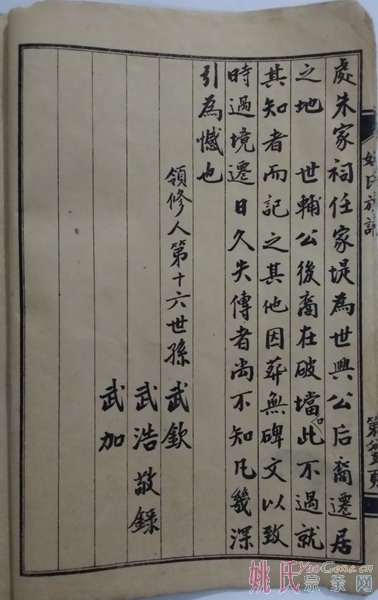 處朱家祠任家堤為世興公后裔遷居
之地 世輔公後裔在破壋口此不過就
其知者而記之其他因葬無碑文以致
時過境遷日久失傳者尚不知凡幾深
引為憾也
領修人第十六世孫 武欽
武浩敬錄
武加
姚氏族譜
姚氏宗亲网
YaoGens.cn